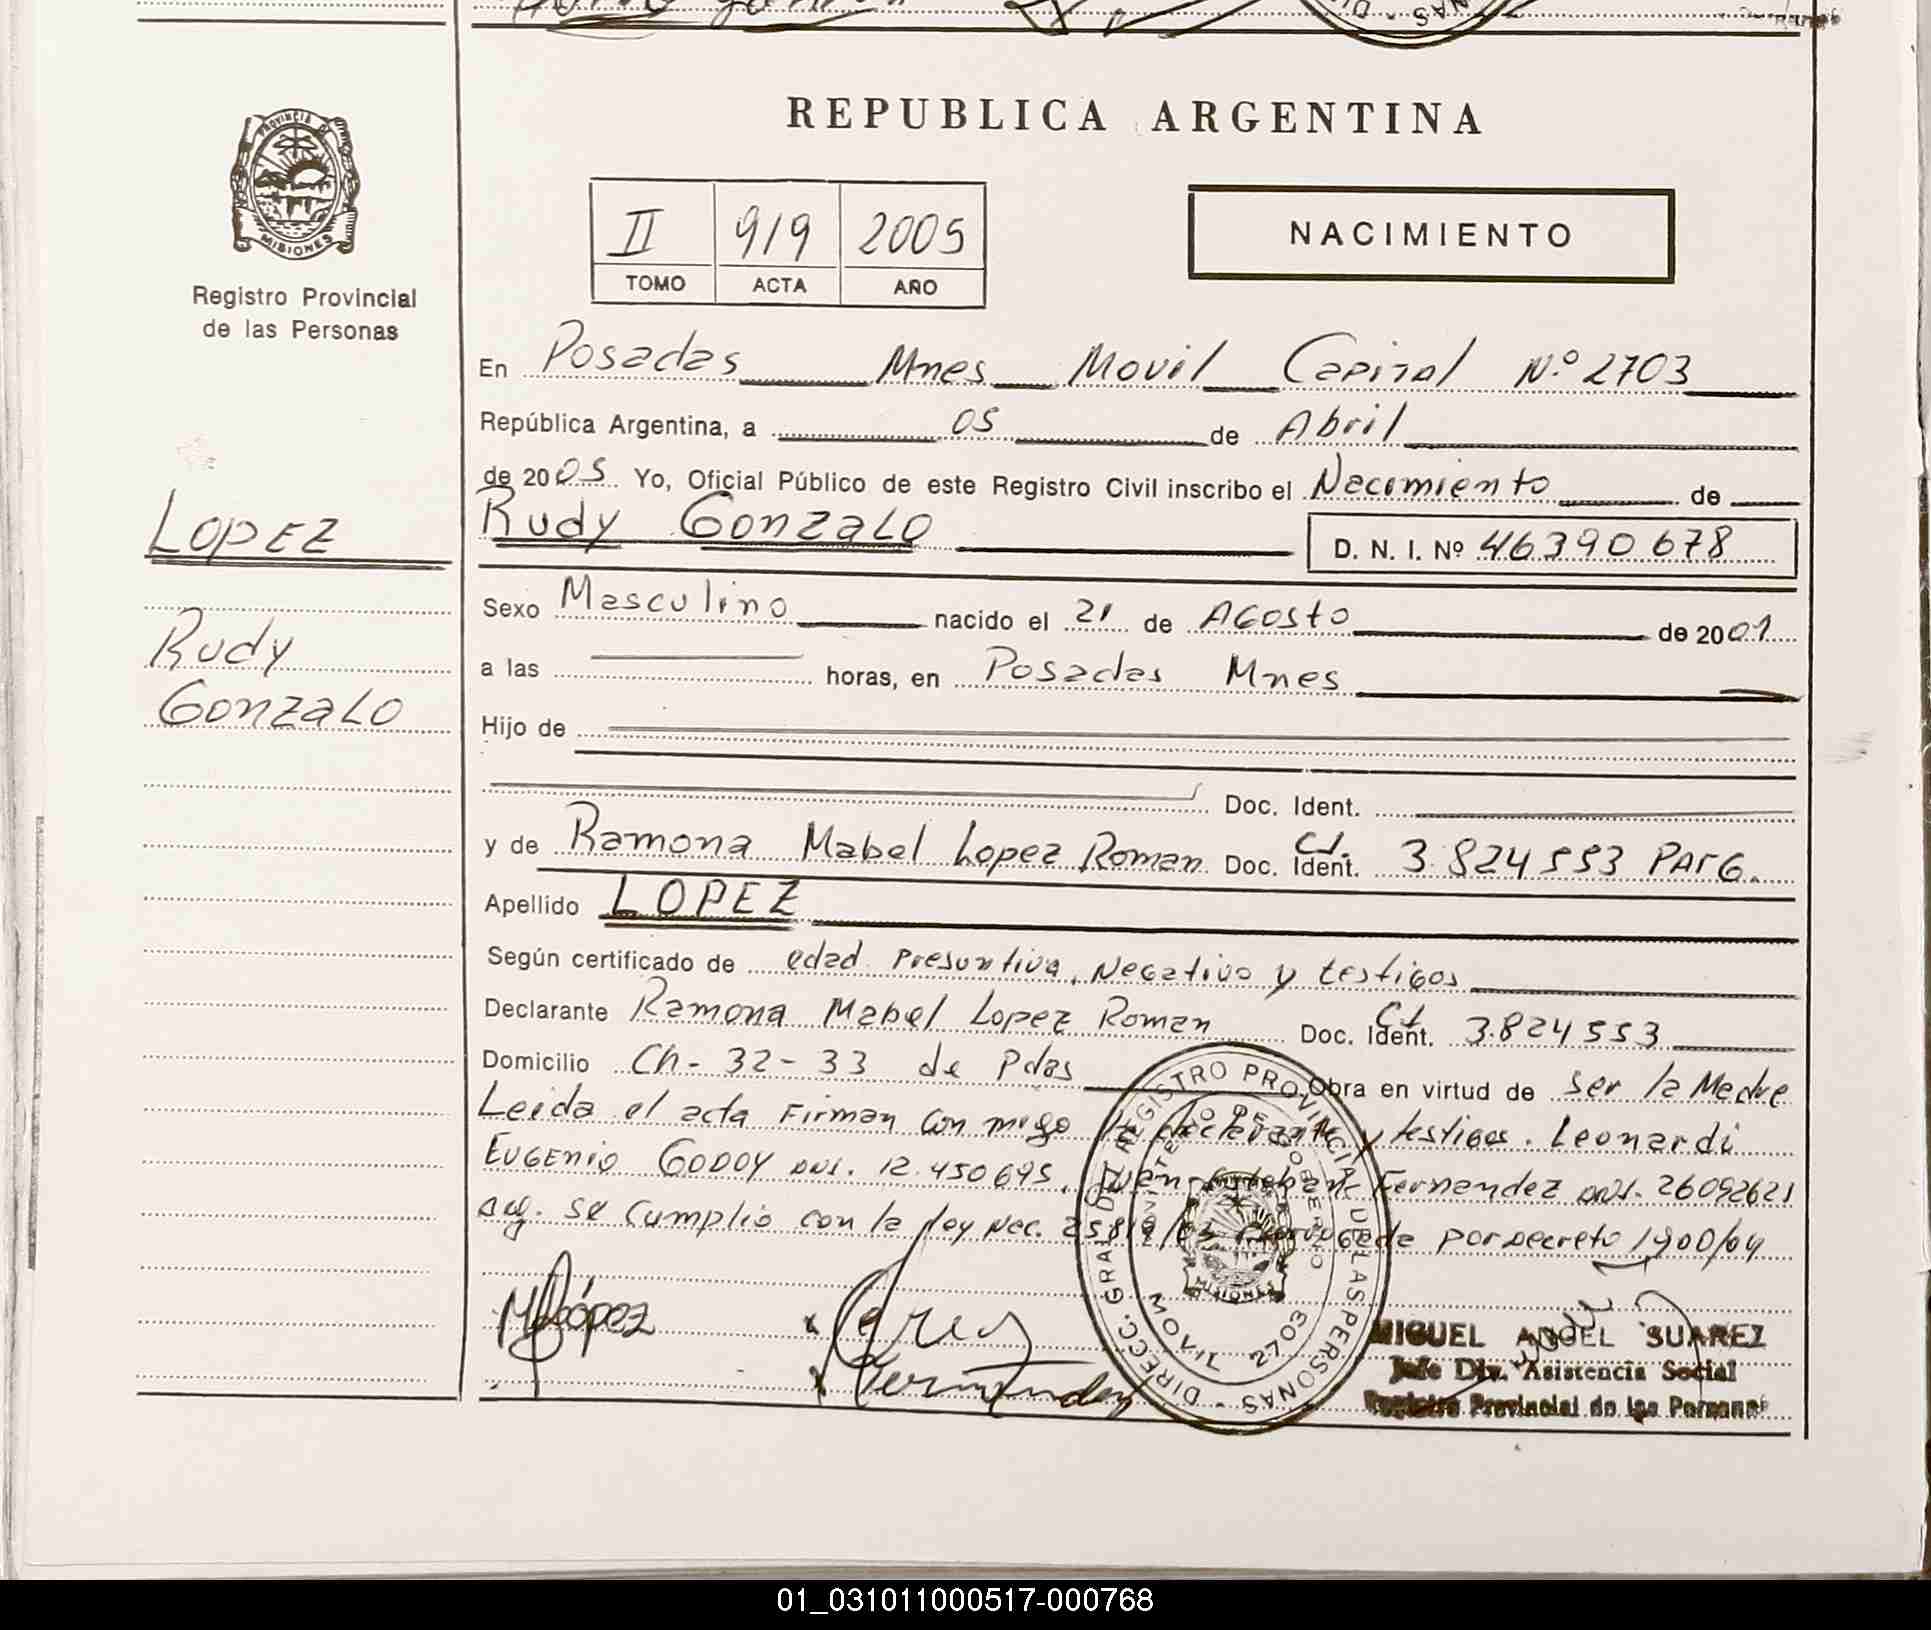 PROVINCIA DE
MISIONES
Registro Provincial
de las Personas
LOPEZ
Rudy
GonzaLo
REPUBLICA ARGENTINA
II 919 2005
TOMO ACTA AÑO
NACIMIENTO
En Posadas Mnes Movil Capital N.º 2703
República Argentina, a 05 de Abril
de 2005 Yo, Oficial Público de este Registro Civil inscribo el Nacimiento de
Rudy GonzaLo D. N. I. Nº 46390678
Sexo Masculino nacido el 21 de AGosto de 2001
a las horas, en Posadas Mnes
Hijo de
Doc. Ident.
y de Ramona Mabel Lopez Roman Doc. Ident. C.I. 3.824553 PArG.
Apellido LOPEZ
Según certificado de edad presuntiva, Negativo y testigos
Declarante Ramona Mabel Lopez Roman Doc. Ident. C.I. 3.824553
Domicilio Ch- 32-33 de Pdas Obra en virtud de ser la Madre
Leida el acta Firman con migo la declarante y testigos. Leonardi
EUGENIO GODOY DNI. 12.450695, Fernandez DNI. 26092621
arg. se cumplio con la ley Nac. por Decreto 1900/04
MLópez
Fernandez
DIRECC. GRAL. DEL REGISTRO PROVINCIAL DE LAS PERSONAS
MINISTERIO DE GOBIERNO
MISIONES
MOVIL 2703
MIGUEL ANGEL SUAREZ
Jefe Div. Asistencia Social
Registro Provincial de las Personas
01_031011000517-000768